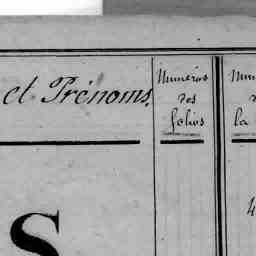 et Prénoms.
Numéros
des
folios
Num
la
S
4